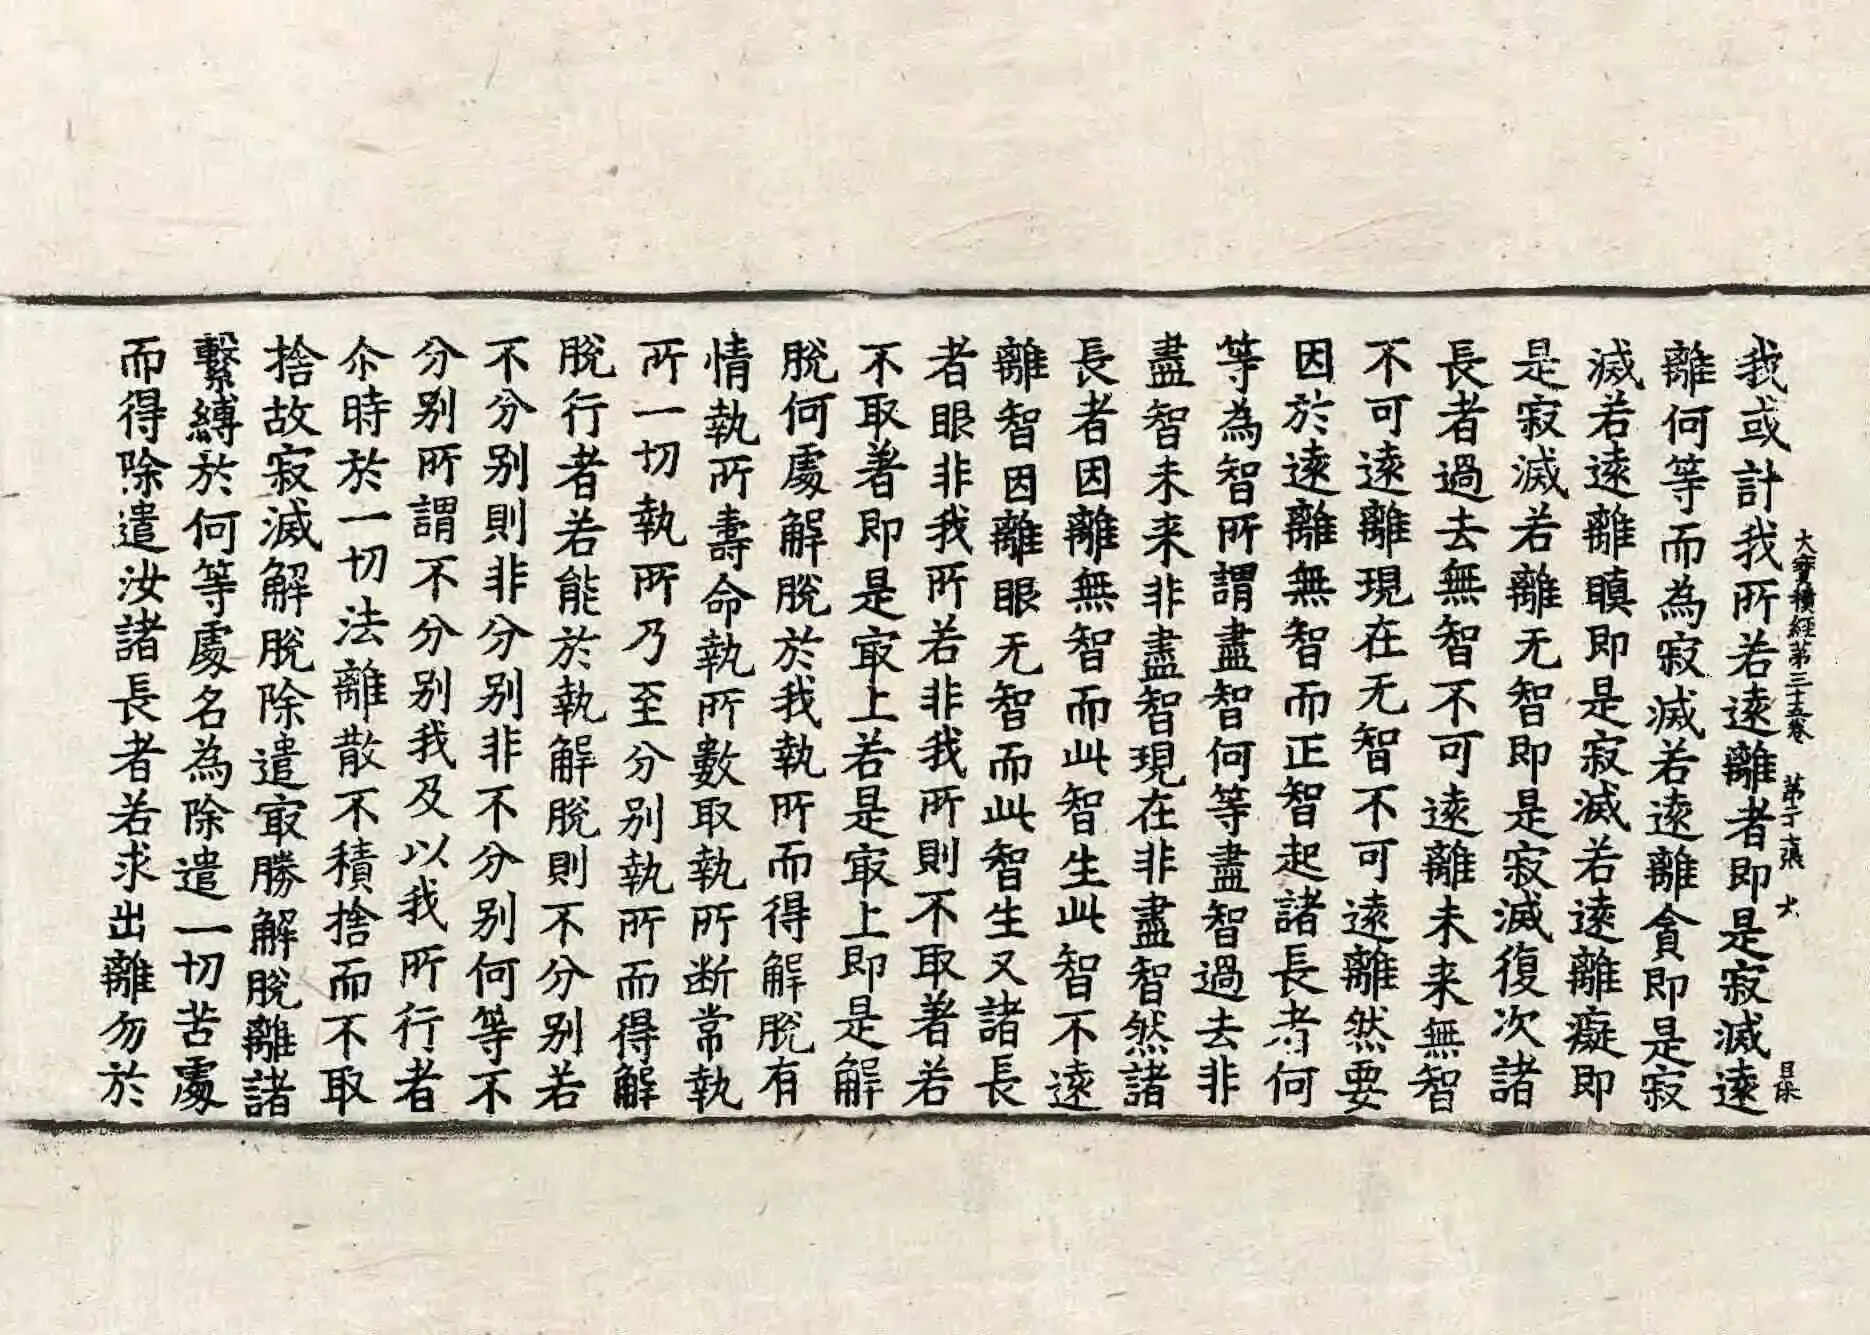 大寶積經第三十五卷 第二十張 火
我或計我所若遠離者即是寂滅遠
離何等而為寂滅若遠離貪即是寂
滅若遠離瞋即是寂滅若遠離癡即
是寂滅若離无智即是寂滅復次諸
長者過去無智不可遠離未来無智
不可遠離現在无智不可遠離然要
因於遠離無智而正智起諸長者何
等為智所謂盡智何等盡智過去非
盡智未来非盡智現在非盡智然諸
長者因離無智而此智生此智不遠
離智因離眼无智而此智生又諸長
者眼非我所若非我所則不取著若
不取著即是冣上若是冣上即是解
脫何處解脫於我執所而得解脫有
情執所壽命執所數取執所断常執
所一切執所乃至分别執所而得解
脫行者若能於執解脫則不分别若
不分别則非分别非不分别何等不
分别所謂不分别我及以我所行者
尒時於一切法離散不積捨而不取
捨故寂滅解脫除遣冣勝解脫離諸
繫縛於何等處名為除遣一切苦處
而得除遣汝諸長者若求出離勿於